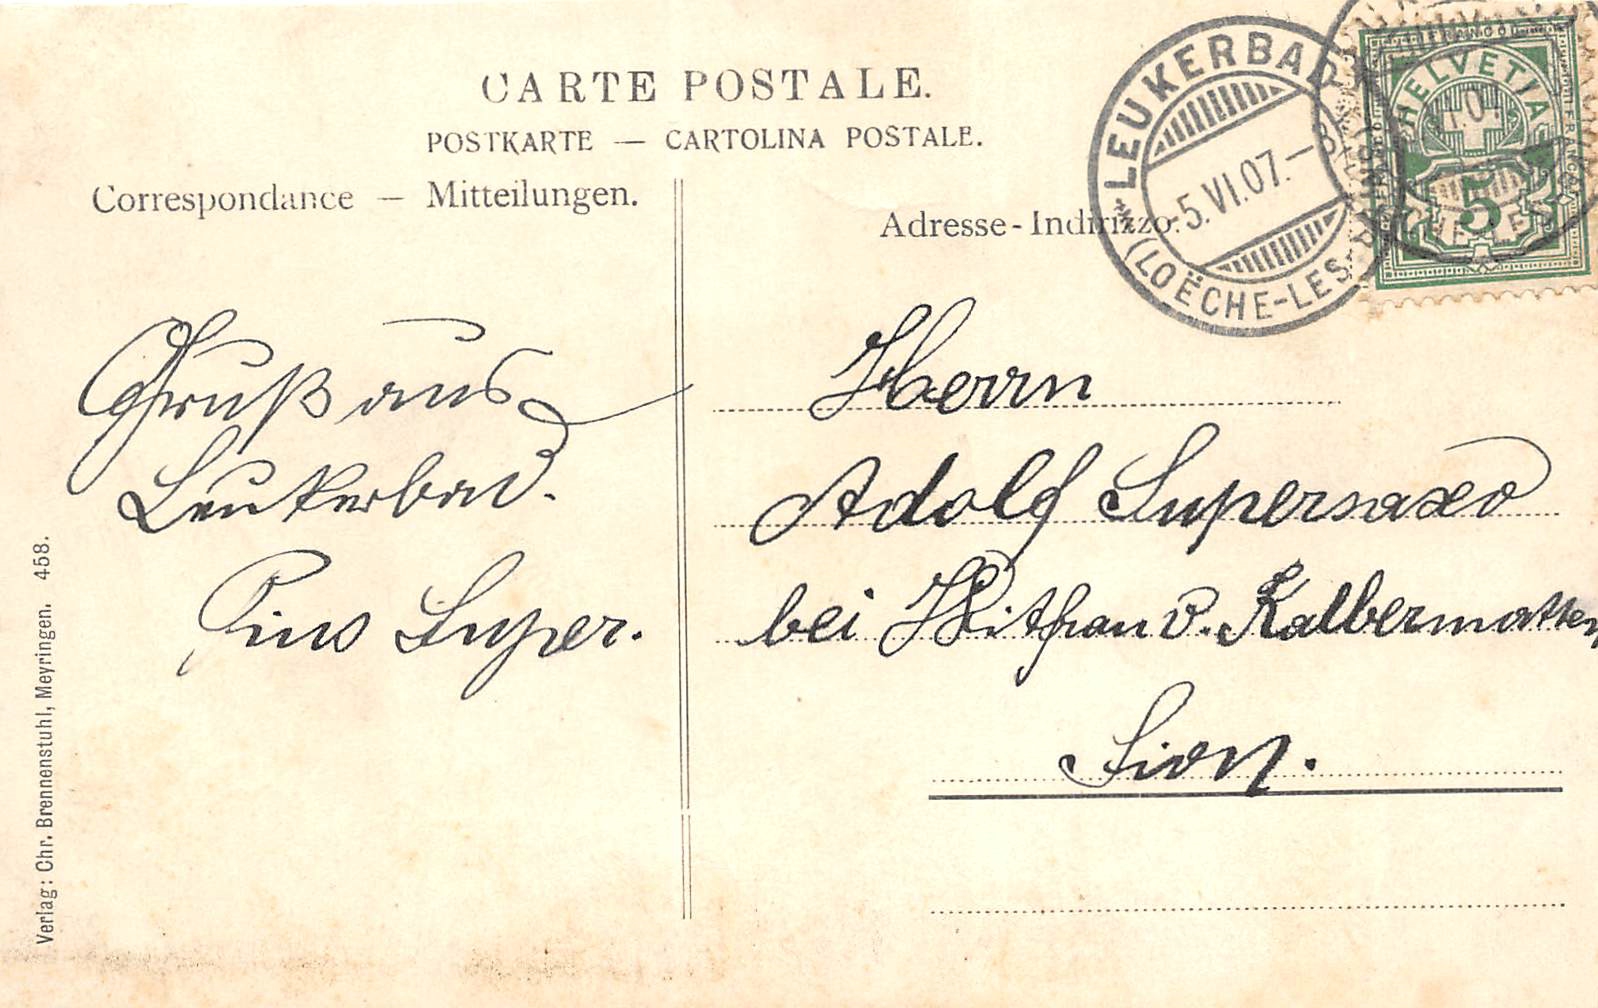 CARTE POSTALE.
POSTKARTE — CARTOLINA POSTALE.
Correspondance — Mitteilungen.
Adresse - Indirizzo.
LEUKERBAD
-5.VI.07.-8
(LOËCHE-LES-
HELVETIA
FRANCO
5
Gruß aus
Leukerbad.
Pius Super.
Herrn
Adolf Supersaxo
bei Witfrau v. Kalbermatten
Sion.
Verlag: Chr. Brennenstuhl, Meyringen. 458.